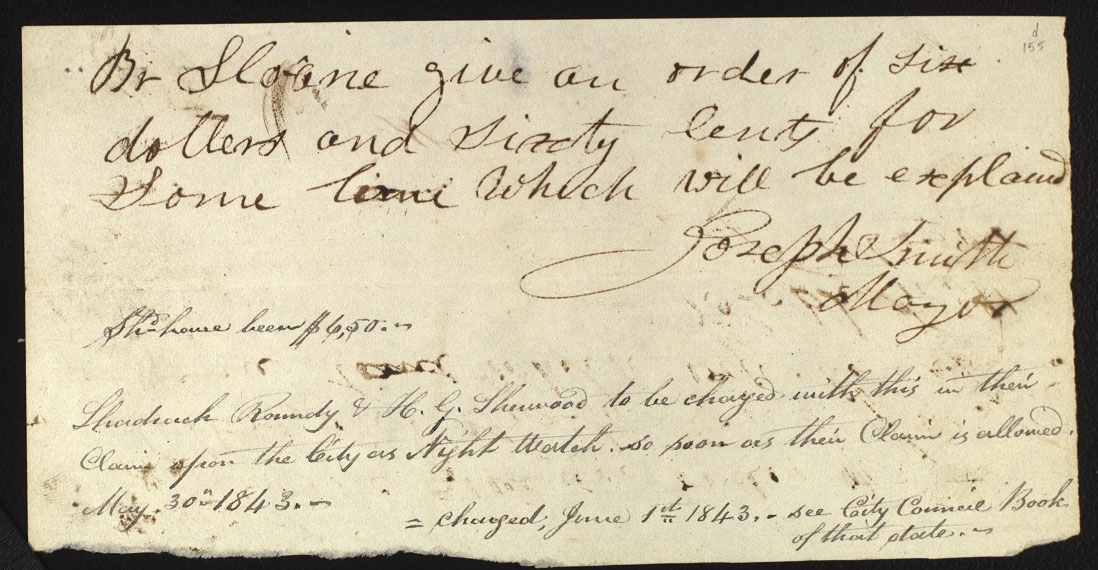 d
155
Br Sloane give an order of six
dollers and sixcty cents for
Some lime which will be explaind
Joseph Smith
Mayor
Shd. have been $6,50.~
Shadrach Roundy & H. G. Sherwood to be charged with this in their
Claim upon the City as Night Watch. so soon as their Claim is allowed.
May 30th 1843. ~
= charged, June 1st 1843. ~ see City Council Book
of that date. ~